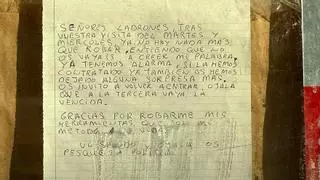 SEÑORES LADRONES, TRAS
VUESTRA VISITA DEL MARTES Y
MIERCOLES, YA NO HAY NADA MAS
QUE ROBAR. ENTIENDO QUE NO
OS VAYAIS A CREER MI PALABRA,
YA TENEMOS ALARMA, SI LA HEMOS
CONTRATADO YA. TAMBIEN OS HEMOS
DEJADO ALGUNA SORPRESA MAS,
OS INVITO A VOLVER A ENTRAR, OJALA
QUE A LA TERCERA VAYA LA
VENCIDA.
GRACIAS POR ROBARME MIS
HERRAMIENTAS QUE SON MI
METODO DE VIDA.
UN SALUDO Y OJALA OS
PESQUE LA POLICIA